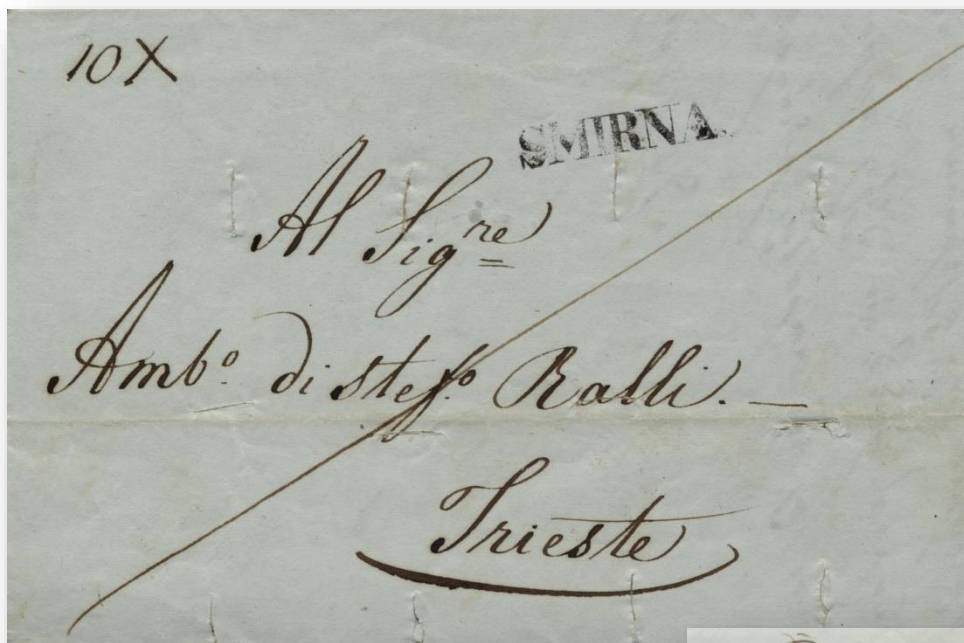 10X
SMIRNA.
Al Sigre
Ambo. di Stefo. Ralli. —
Trieste